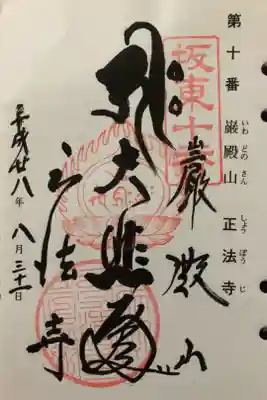 第十番 巌殿山 正法寺
いわ どの さん しょう ぼう じ
坂東十番
巌殿山
大悲殿
正法寺
平成廿八年 八月三十一日